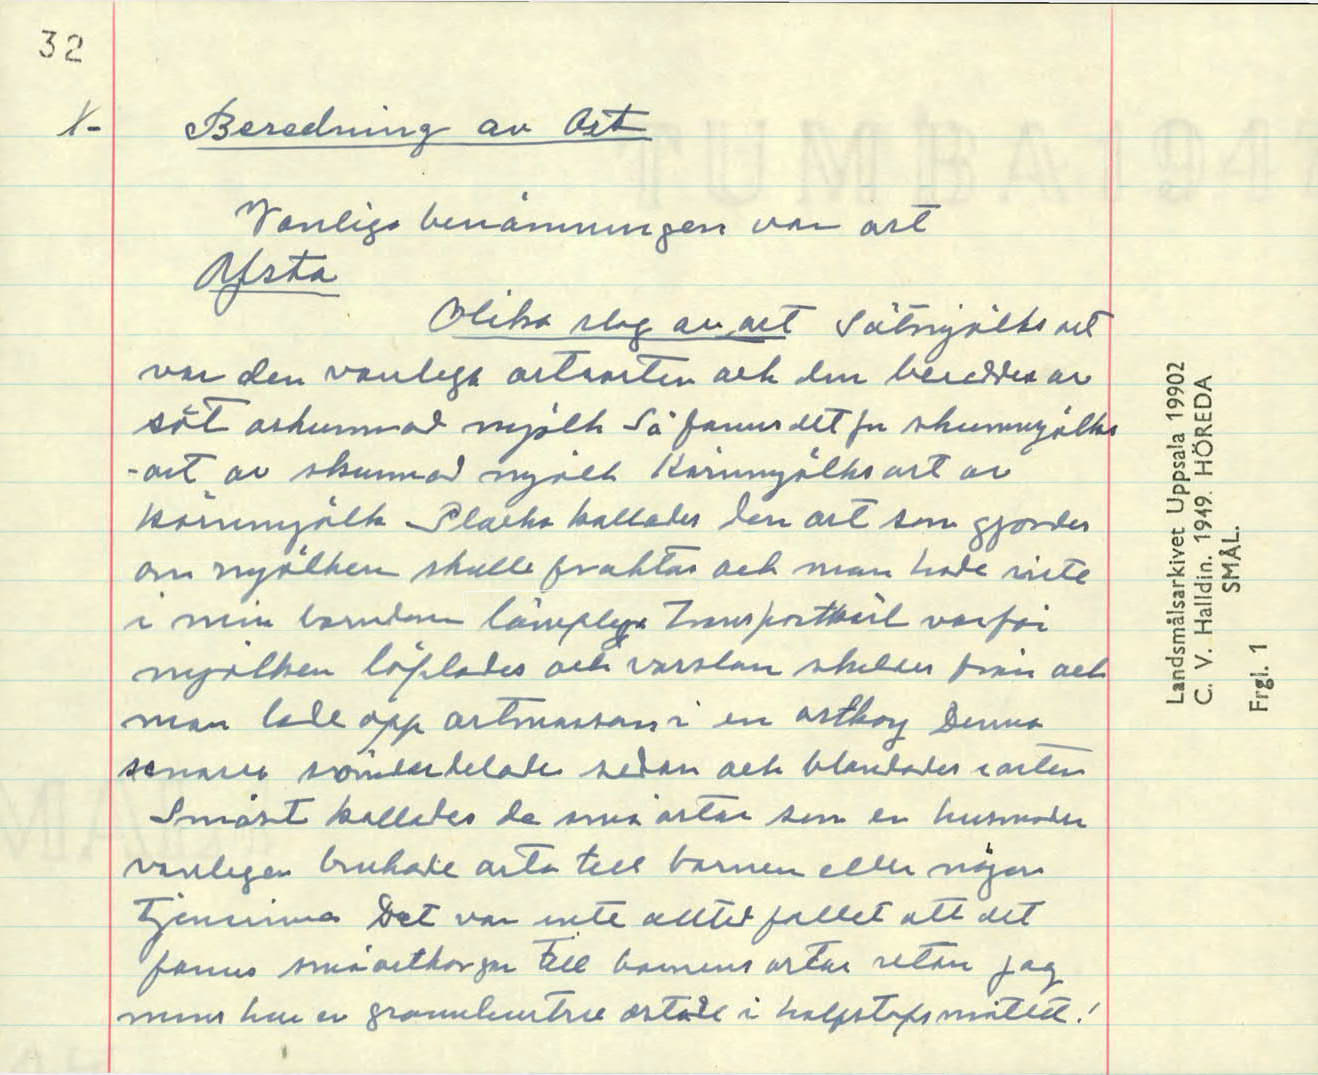 32
X-
Beredning av Ost
Vanliga benämningen var ost
Ysta
Olika slag av ost Sötmjölksost
var den vanliga ostsorten och den bereddes av
söt oskummad mjölk Så fanns det ju skummjölks
-ost av skummad mjölk Kärnmjölksost av
kärnmjölk Placka kallades den ost som gjordes
om mjölken skulle fraktas och man hade inte
i min barndom lämpliga Transportkärl varför
mjölken löplades och vasslan skildes från och
man lade opp ostmassan i en ostkorg Denna
senare sönderdelades sedan och blandades i osten
Småost kallades de små ostar som en husmoder
vanligen brukade osta till barnen eller någon
tjenarinna Det var inte alltid fallet att det
fanns småostkorgar till barnens ostar utan jag
minns hur en grannhustru ostade i halfstopsmåttet!
Landsmålsarkivet Uppsala 19902
C. V. Halldin. 1949. HÖREDA
SMÅL.
Frgl. 1